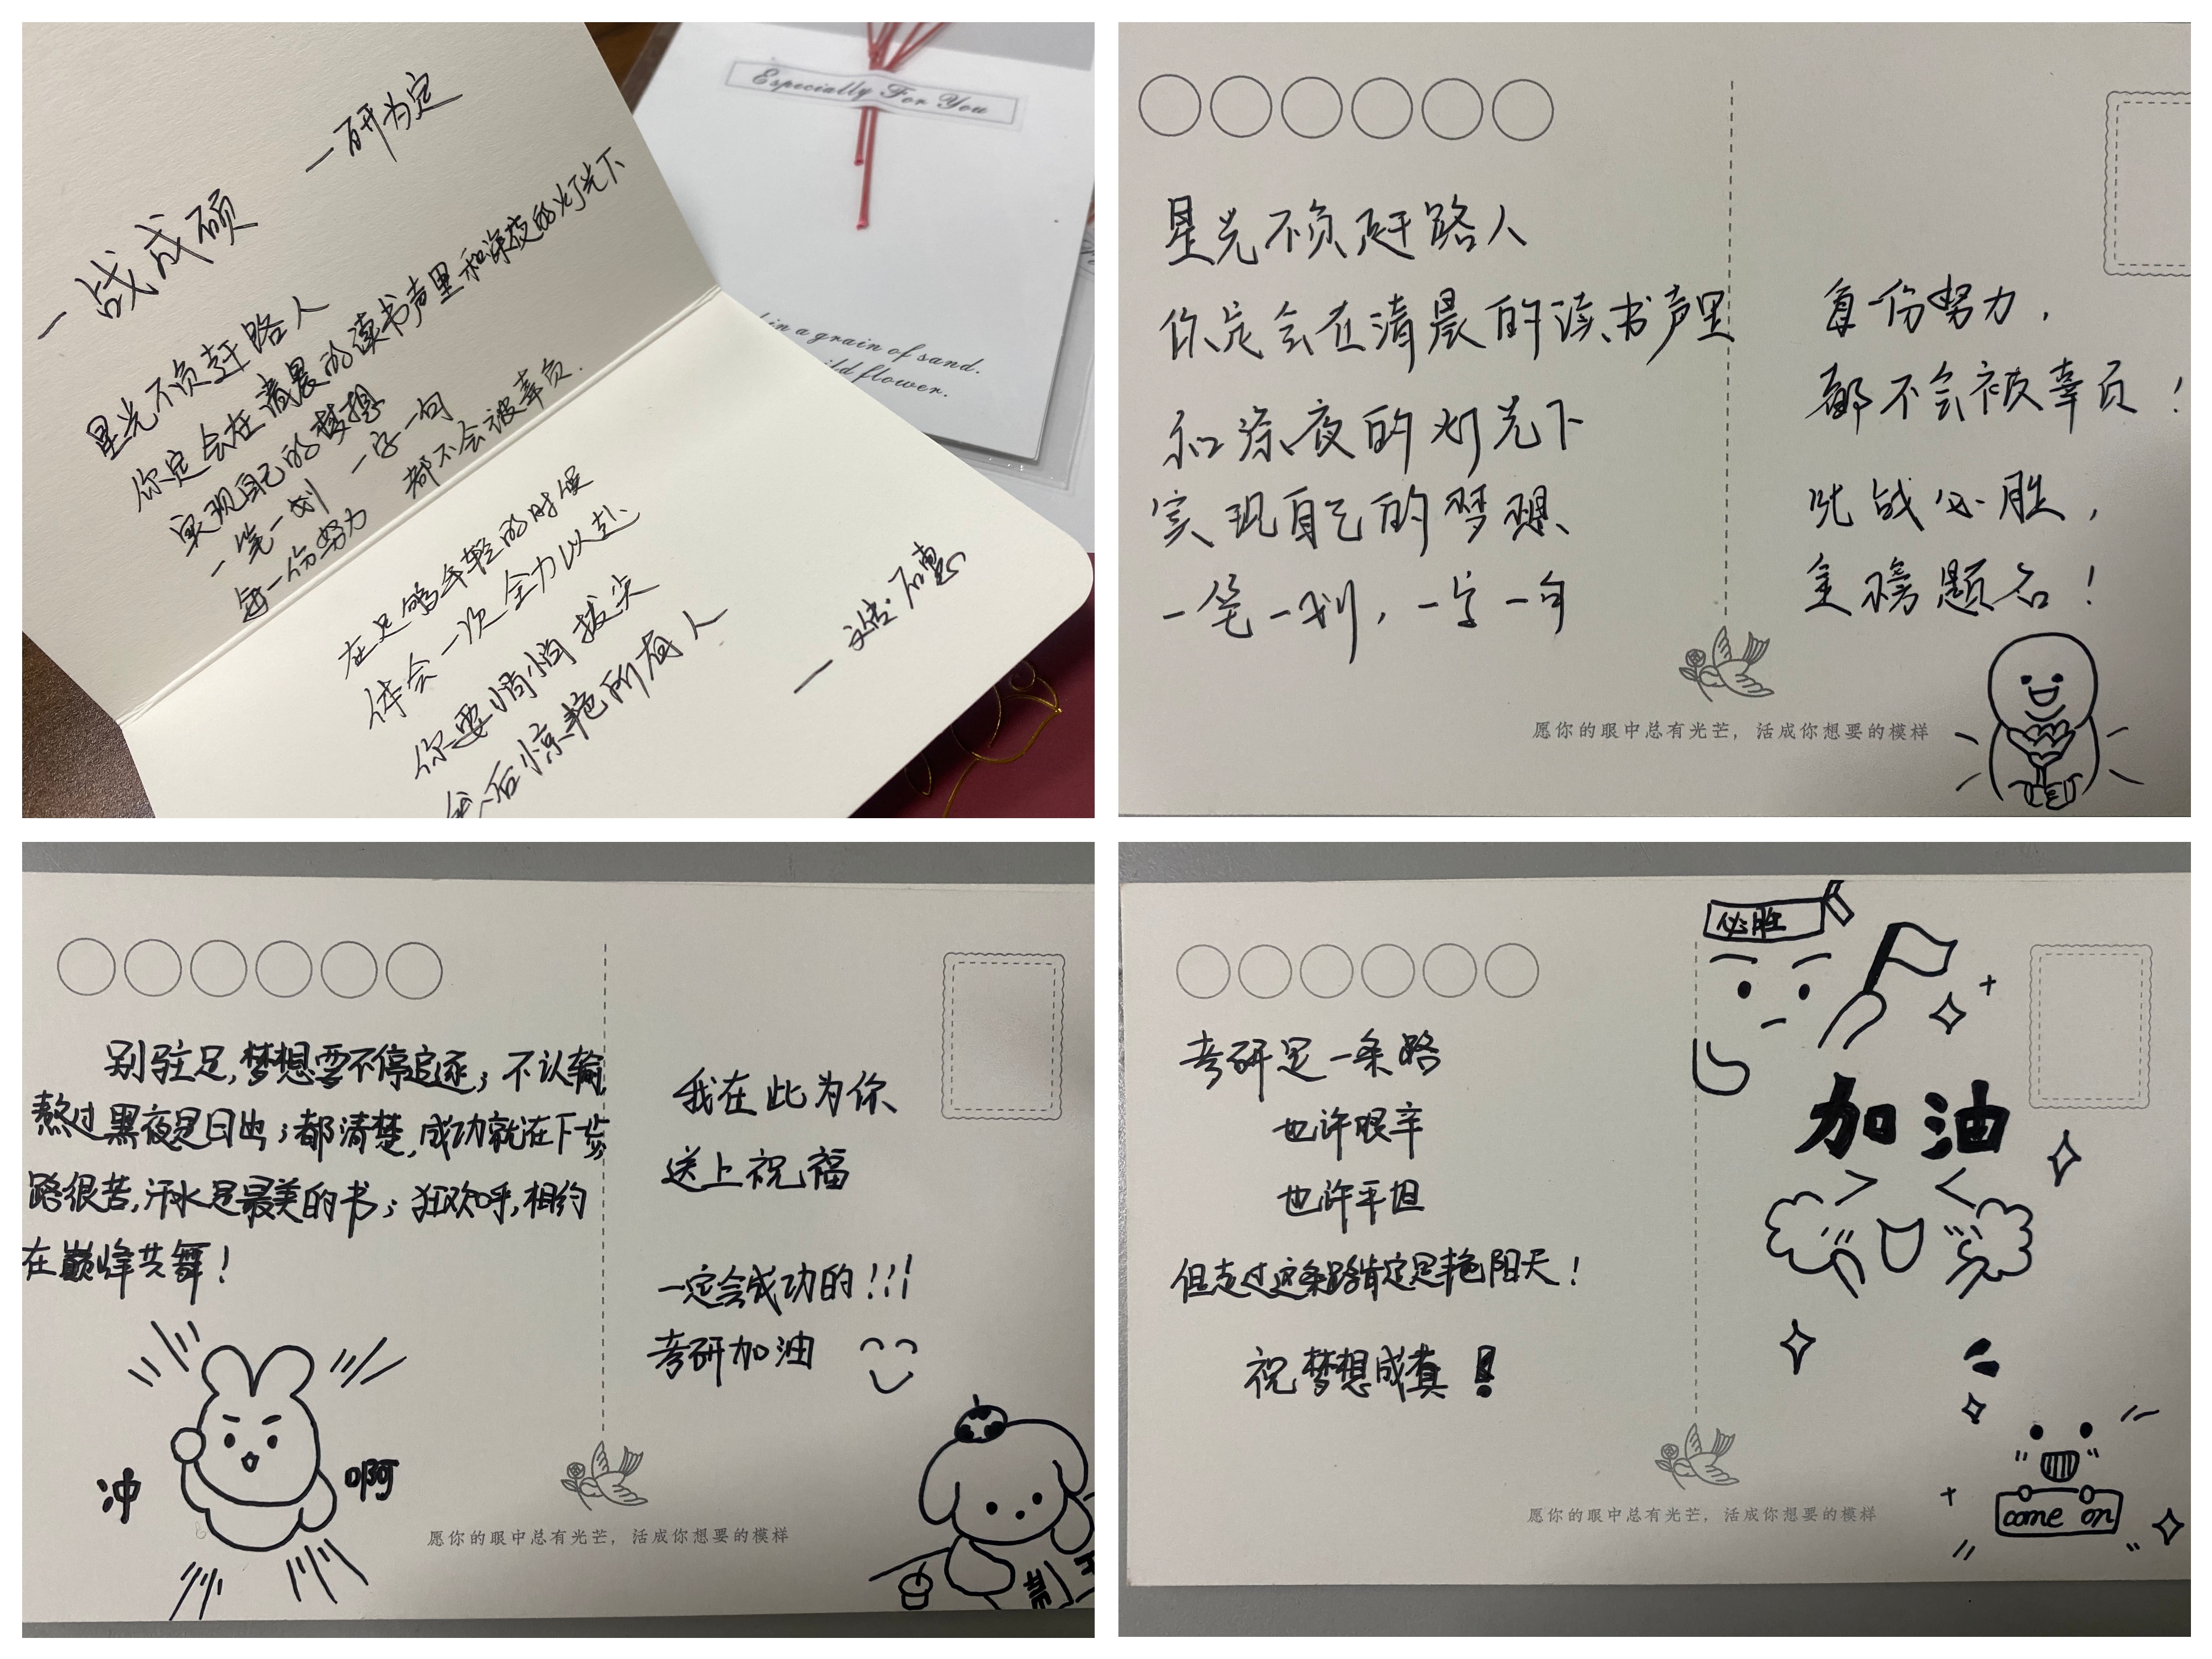 一研为定
一战成硕
星光不负赶路人
你定会在清晨的读书声里和深夜的灯光下
实现自己的梦想
一笔一划 一字一句
每一份努力 都不会被辜负.
在足够年轻的时候
体会一次全力以赴
你要悄悄拔尖
然后惊艳所有人
Especially For You
in a grain of sand.
ild flower.
星光不负赶路人
你定会在清晨的读书声里
和深夜的灯光下
实现自己的梦想
一笔一划，一字一句
每一份努力，
都不会被辜负！
此战必胜，
金榜题名！
愿你的眼中总有光芒，活成你想要的模样
别驻足,梦想要不停追逐；不认输
熬过黑夜是日出；都清楚,成功就在下一步
路很苦,汗水是最美的书；狂欢呼,相约
在巅峰共舞！
我在此为你
送上祝福
一定会成功的!!!
考研加油
冲
啊
愿你的眼中总有光芒，活成你想要的模样
必胜
考研是一条路
也许艰辛
也许平坦
但走过这条路肯定是艳阳天！
祝梦想成真！
加油
come on
愿你的眼中总有光芒，活成你想要的模样